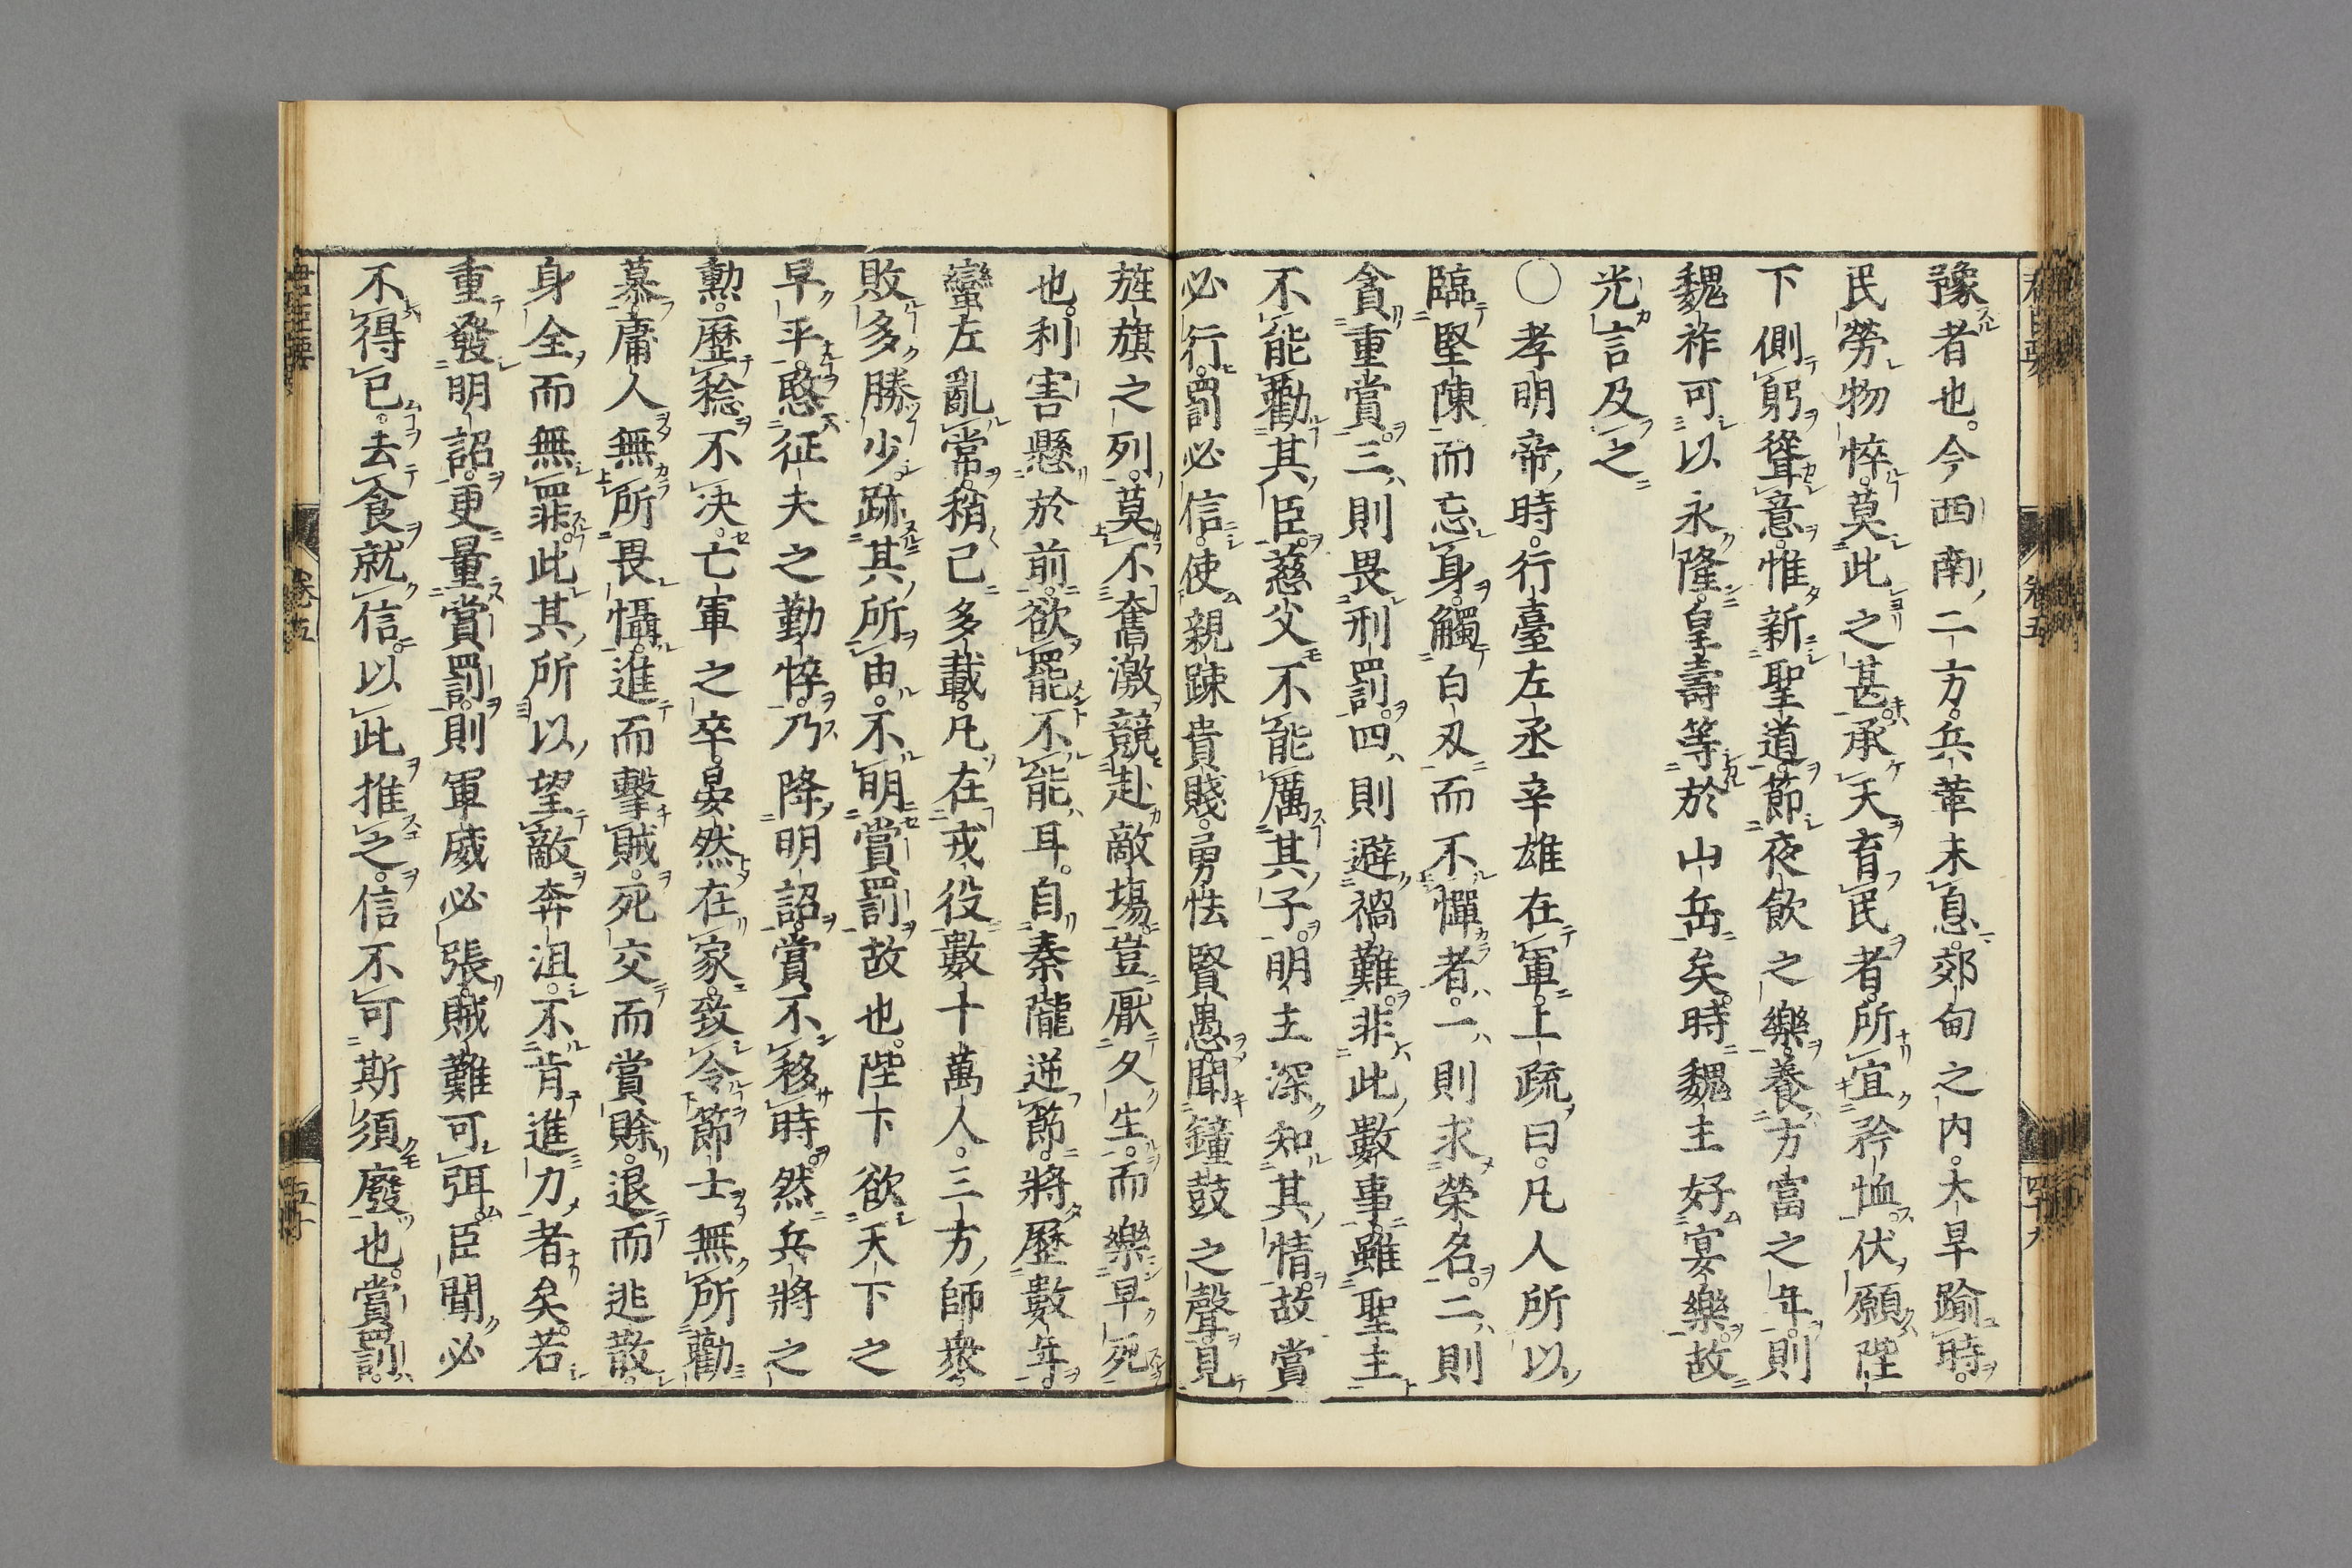 豫者也。今西南二方。兵革未息。郊甸之内。大旱踰時。
民勞物悴。莫此之甚。承天育民者。所宜矜恤。伏願陛
下側躬聳意。惟新聖道。節夜飲之樂。養方富之年。則
魏祚可以永隆。皇壽等於山岳矣。時魏主好宴樂。故
光言及之
〇孝明帝時。行臺左丞辛雄在軍。上疏曰。凡人所以
臨堅陳而忘身。觸白刃而不憚者。一則求榮名。二則
貪重賞。三則畏刑罰。四則避禍難。非此數事。雖聖主
不能勸其臣。慈父不能厲其子。明主深知其情。故賞
必行。罰必信。使親疎貴賤。勇怯賢愚。聞鐘鼓之聲。見
旌旗之列。莫不奮激競赴敵場。豈厭久生。而樂早死
也。利害懸於前。欲罷不能耳。自秦隴逆節。將歷數年。
蠻左亂常。稍已多載。凡在戎役數十萬人。三方師衆。
敗多勝少。跡其所由。不明賞罰故也。陛下欲天下之
早平。愍征夫之勤悴。乃降明詔。賞不移時。然兵將之
勲。歷稔不决。亡軍之卒。晏然在家。致令節士無所勸
慕。庸人無所畏懾。進而擊賊。死交而賞賖。退而逃散。
身全而無罪。此其所以望敵奔沮。不肯進力者矣。若
重發明詔。更量賞罰。則軍威必張。賊難可弭。臣聞必
不得已。去食就信。以此推之。信不可斯須廢也。賞罰。
卷五
卷五
五十